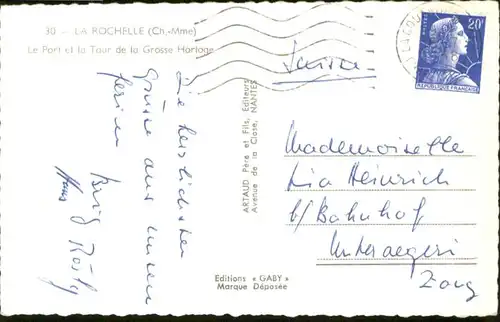 30 - LA ROCHELLE (Ch.-Mme)
Le Port et la Tour de la Grosse Horloge
Die herzlichsten
Grüsse aus unsern
Ferien
Hans
ARTAUD Père et Fils, Editeurs
Avenue de la Close, NANTES
Editions « GABY »
Marque Déposée
20F
REPUBLIQUE FRANÇAISE
Suisse
Mademoiselle
Lia Heinrich
b/Bahnhof
Unteraegeri
Zoug